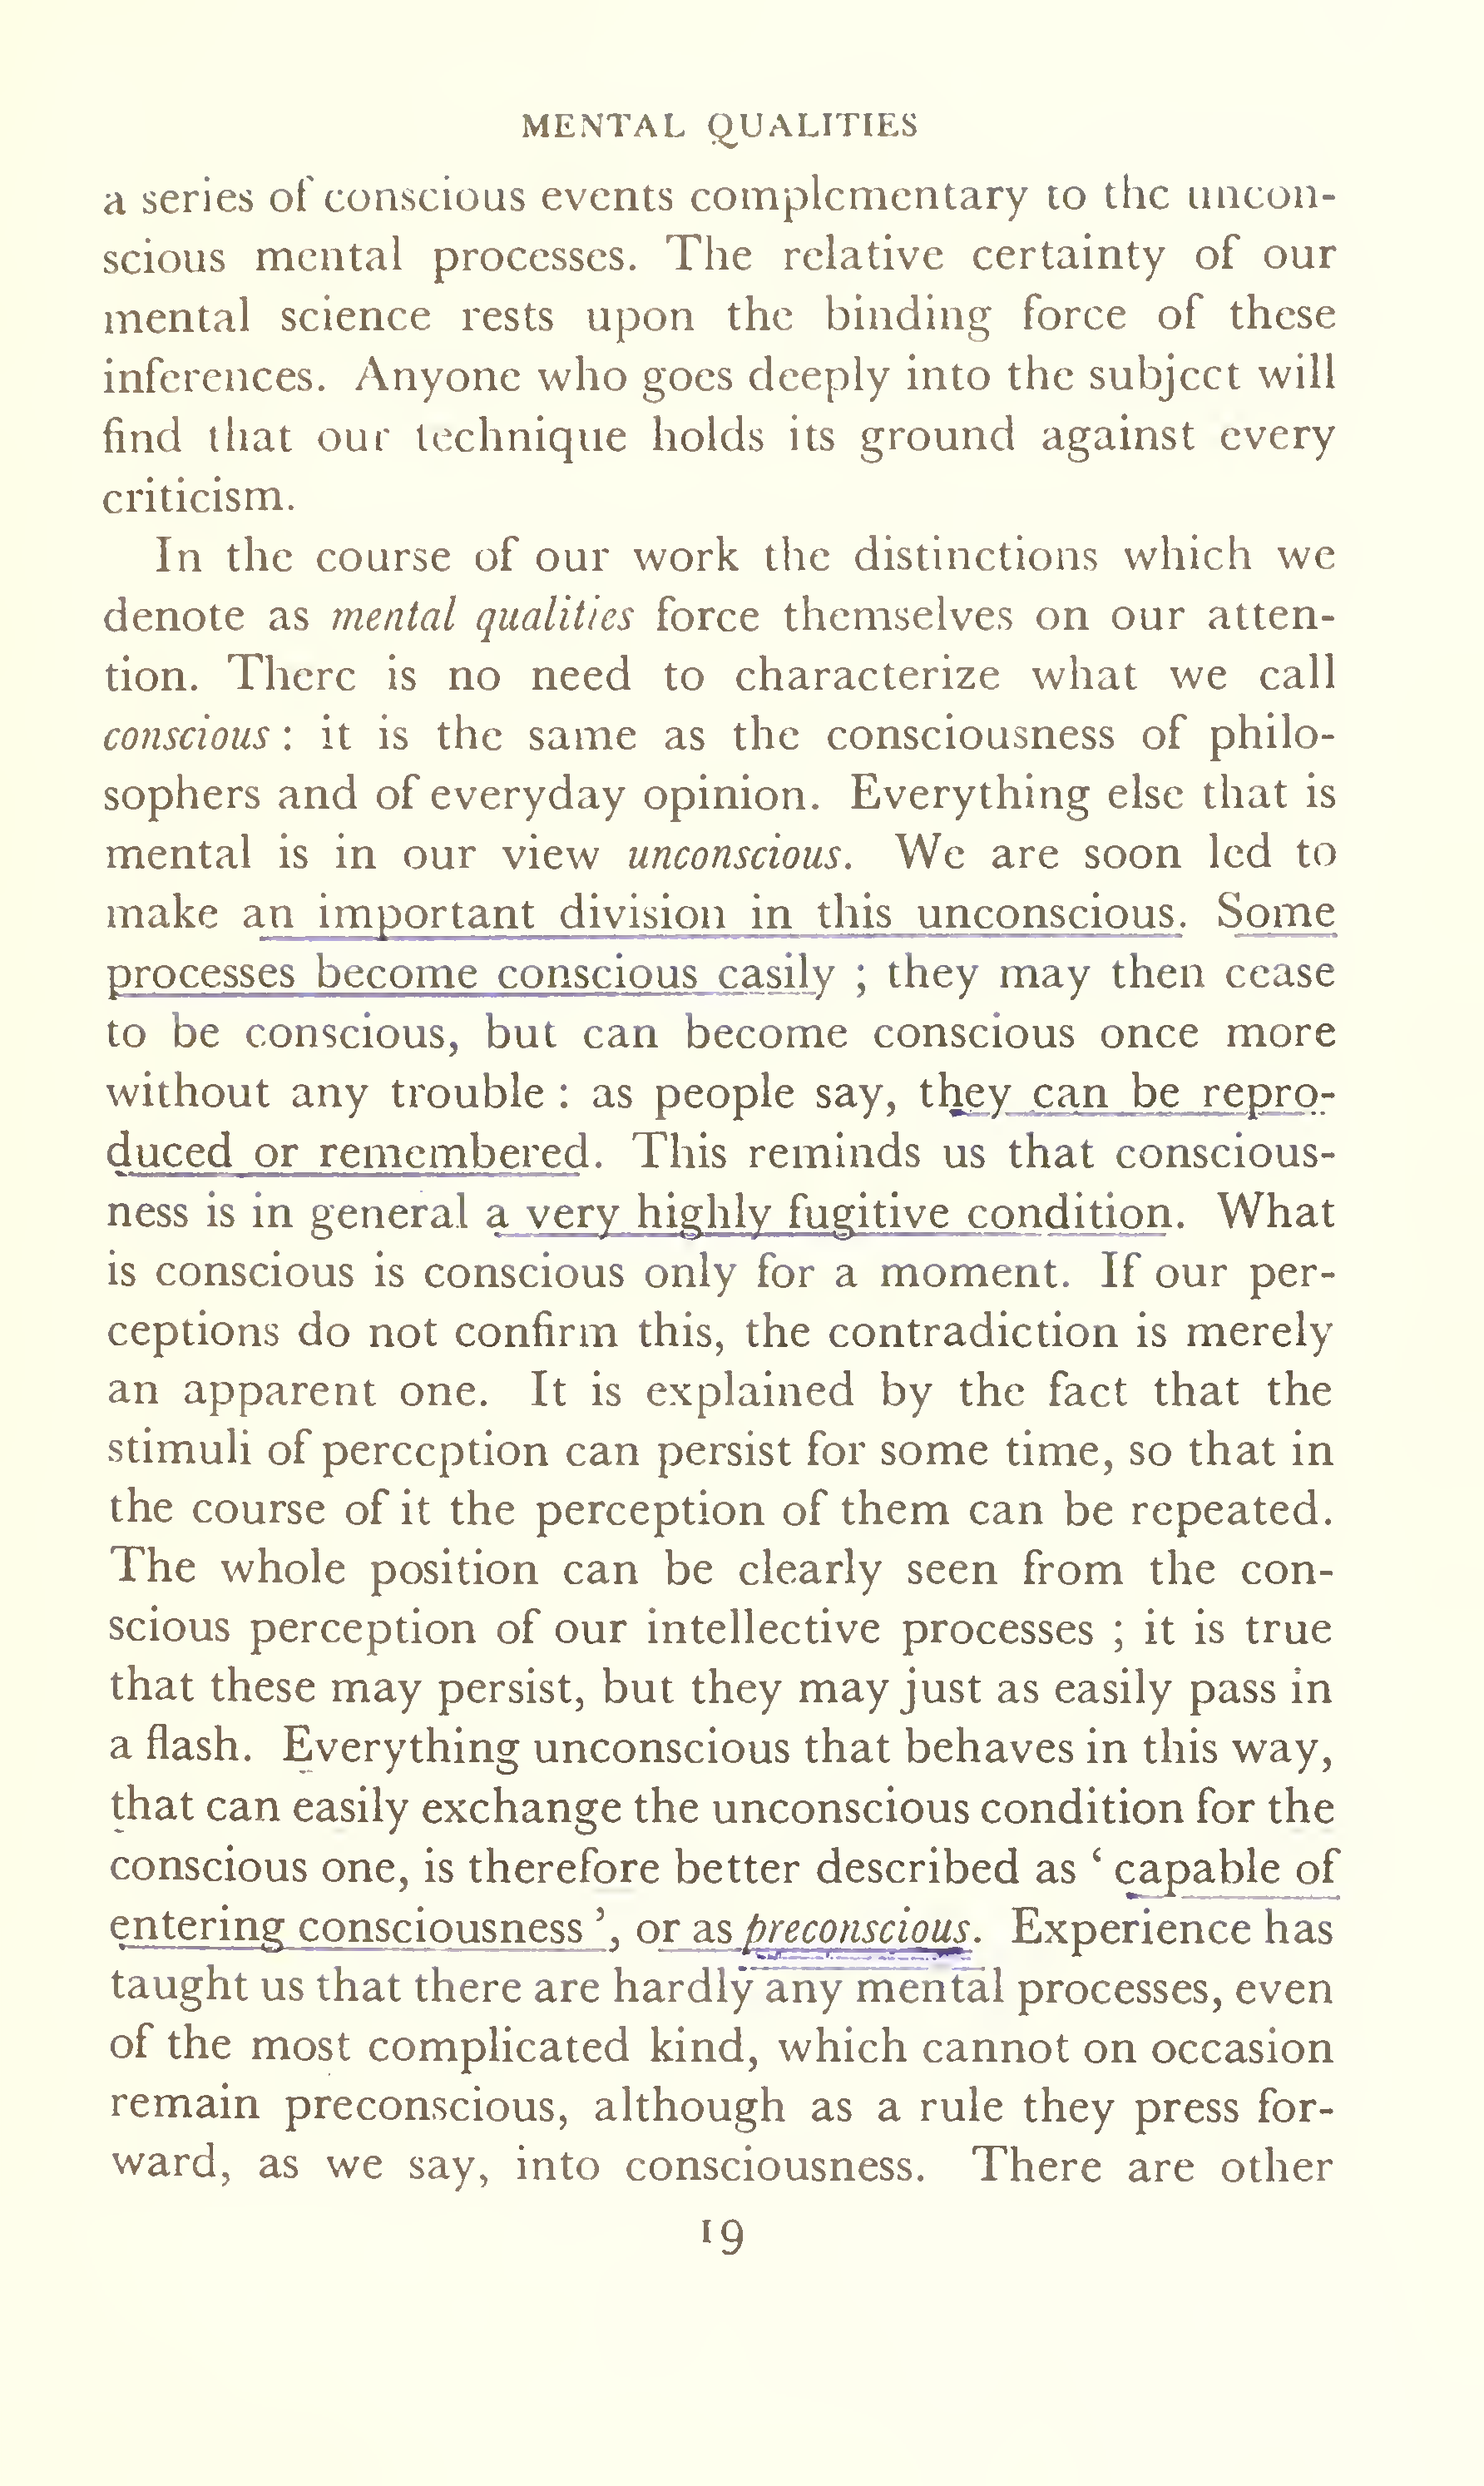 MENTAL QUALITIES
a series of conscious events complementary to the uncon-
scious mental processes. The relative certainty of our
mental science rests upon the binding force of these
inferences. Anyone who goes deeply into the subject will
find that our technique holds its ground against every
criticism.
In the course of our work the distinctions which we
denote as mental qualities force themselves on our atten-
tion. There is no need to characterize what we call
conscious : it is the same as the consciousness of philo-
sophers and of everyday opinion. Everything else that is
mental is in our view unconscious. We are soon led to
make an important division in this unconscious. Some
processes become conscious easily ; they may then cease
to be conscious, but can become conscious once more
without any trouble : as people say, they can be repro-
duced or remembered. This reminds us that conscious-
ness is in general a very highly fugitive condition. What
is conscious is conscious only for a moment. If our per-
ceptions do not confirm this, the contradiction is merely
an apparent one. It is explained by the fact that the
stimuli of perception can persist for some time, so that in
the course of it the perception of them can be repeated.
The whole position can be clearly seen from the con-
scious perception of our intellective processes ; it is true
that these may persist, but they may just as easily pass in
a flash. Everything unconscious that behaves in this way,
that can easily exchange the unconscious condition for the
conscious one, is therefore better described as ‘ capable of
entering consciousness ’, or as preconscious. Experience has
taught us that there are hardly any mental processes, even
of the most complicated kind, which cannot on occasion
remain preconscious, although as a rule they press for-
ward, as we say, into consciousness. There are other
19